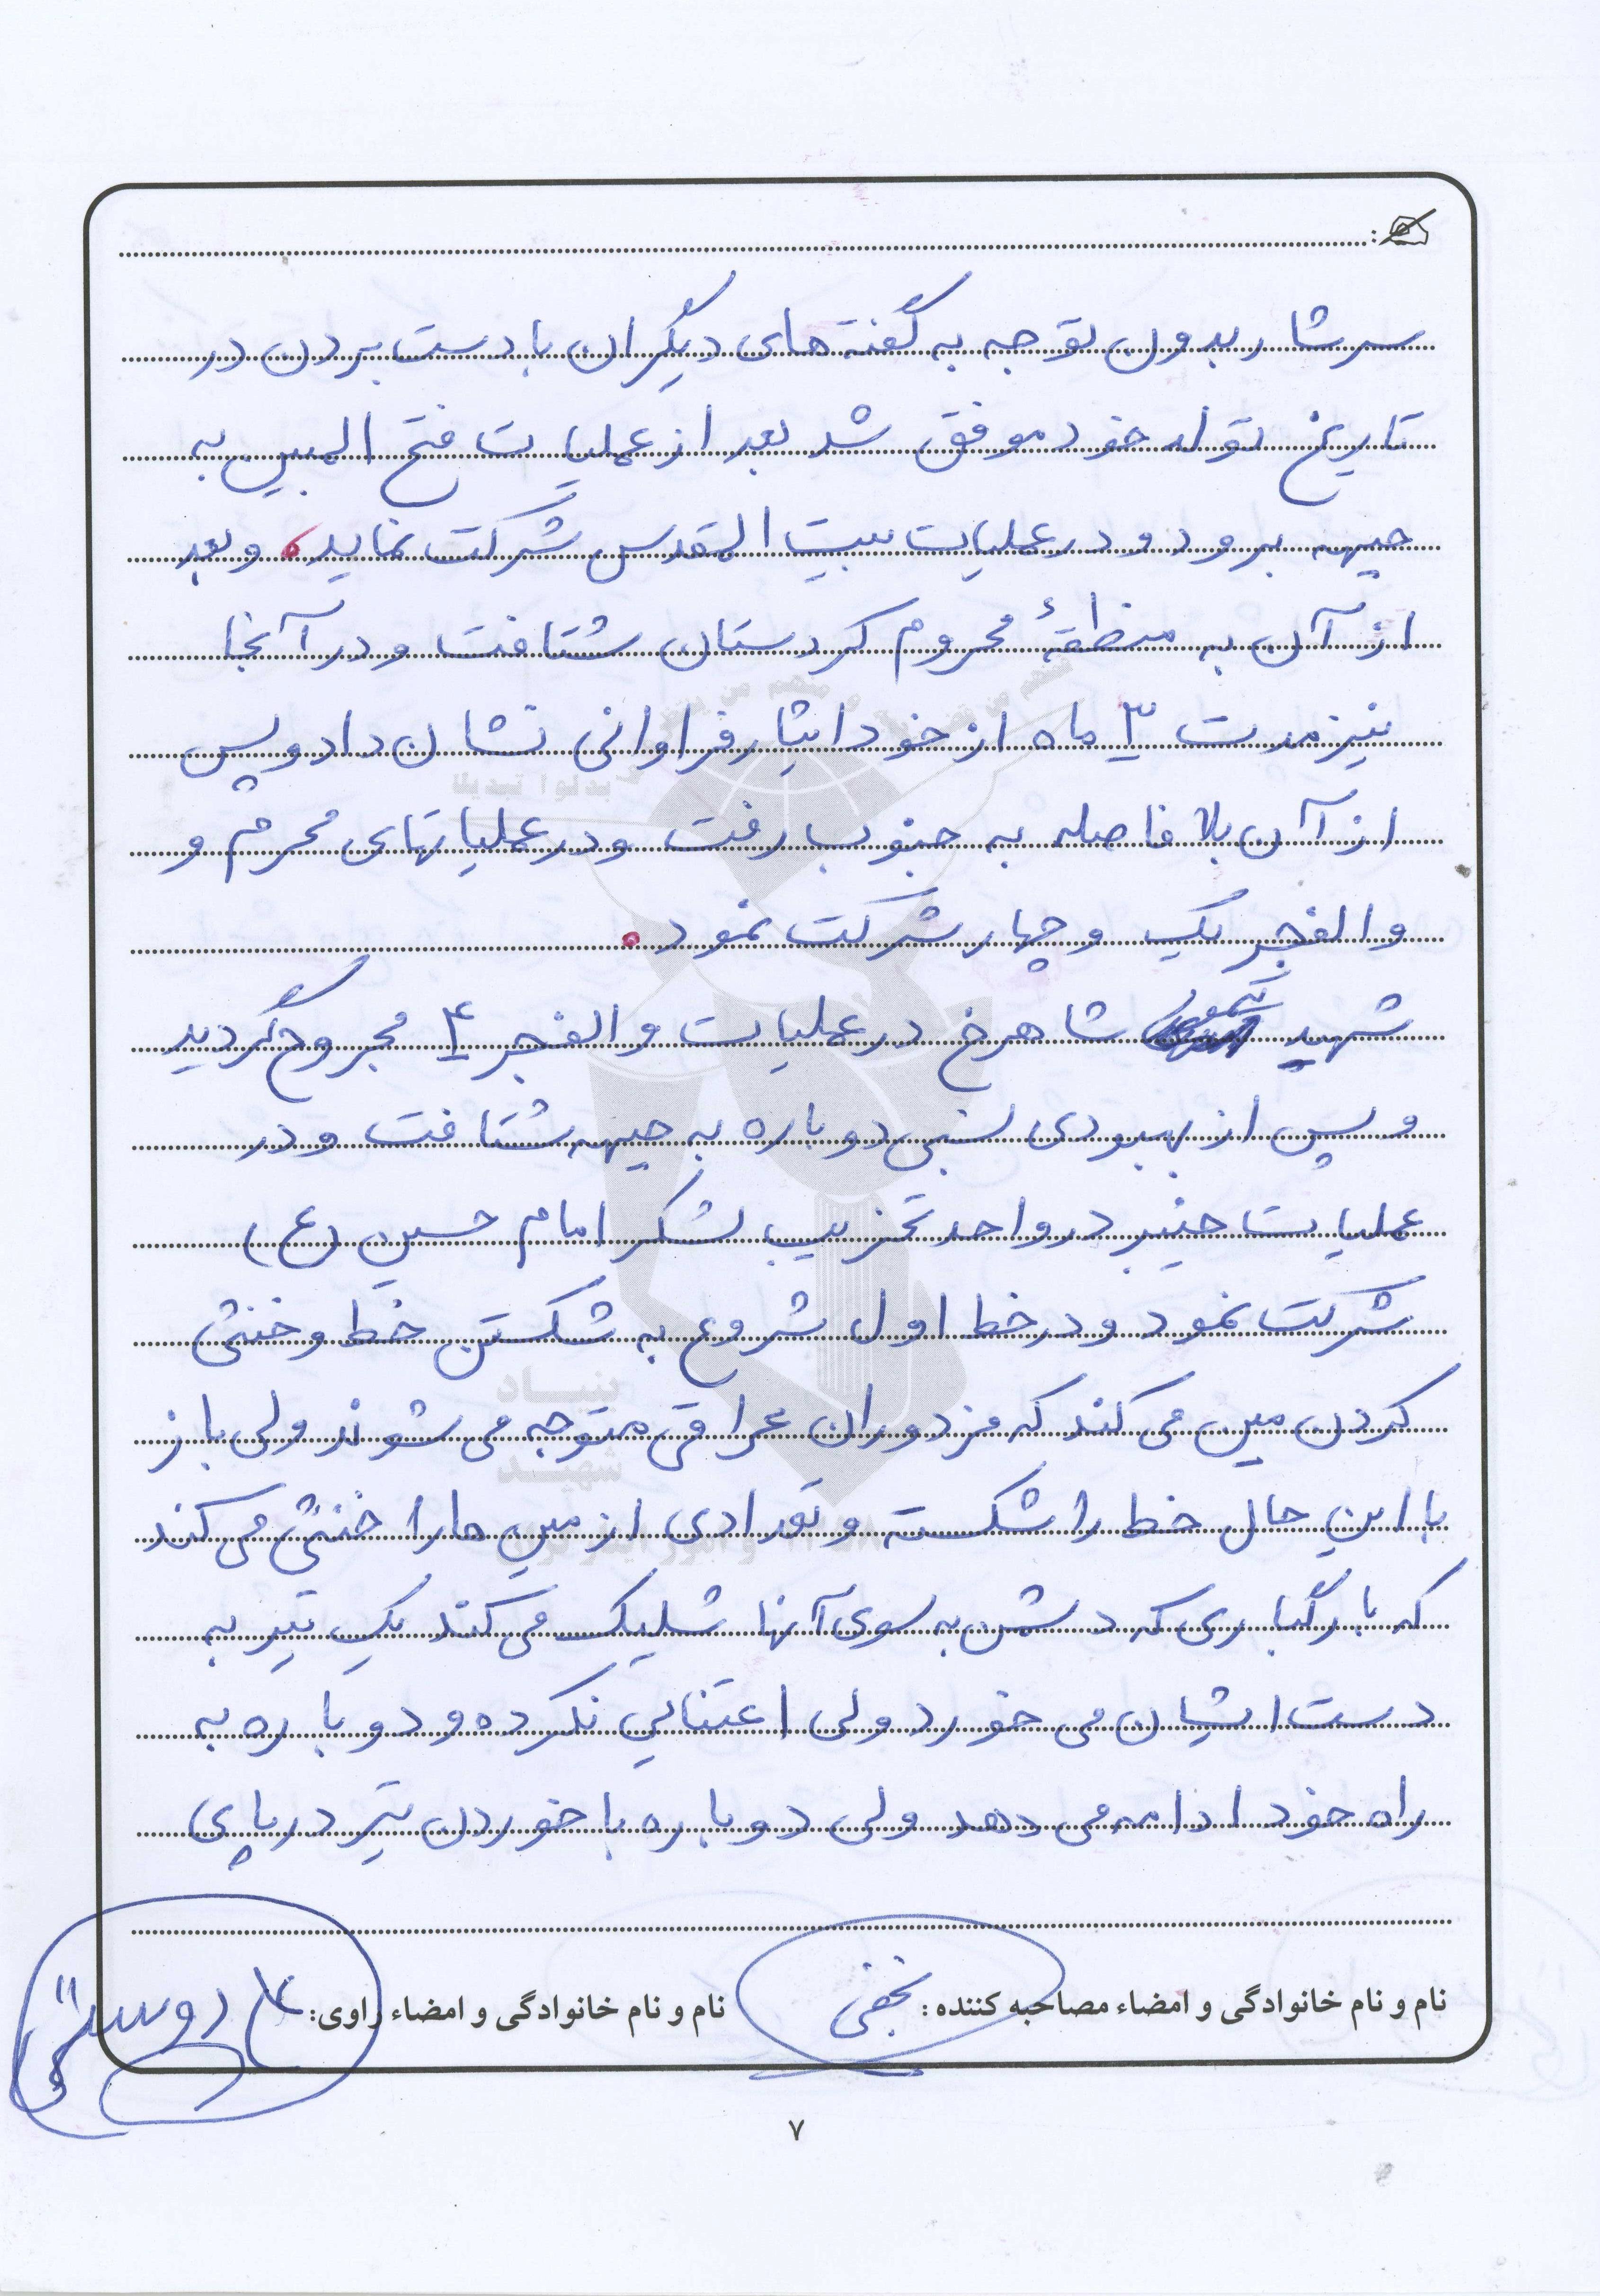 سرشار بدون توجه به گفته های دیگران با دست بردن در
تاریخ تولد خود موفق شد بعد از عملیات فتح المبین به
جبهه برود و در عملیات بیت المقدس شرکت نماید. و بعد
از آن به منطقهٔ محروم کردستان شتافت و در آنجا
نیز مدت ۳ ماه از خود ایثار فراوانی نشان داد و پس
از آن بلا فاصله به جنوب رفت و در عملیاتهای محرم و
والفجر یک و چهار شرکت نمود.
شهید شاهرخ در عملیات والفجر ۴ مجروح گردید
و پس از بهبودی نسبی دوباره به جبهه شتافت و در
عملیات خیبر در واحد تخریب لشکر امام حسین (ع)
شرکت نمود و در خط اول شروع به شکستن خط و خنثی
کردن مین می کند که مزدوران عراقی متوجه می شوند ولی باز
با این حال خط را شکسته و تعدادی از مین ها را خنثی می کند
که با رگباری که دشمن به سوی آنها شلیک می کند یک تیر به
دست ایشان می خورد ولی اعتنایی نکرده و دوباره به
راه خود ادامه می دهد ولی دوباره با خوردن تیر در پای
نام و نام خانوادگی و امضاء مصاحبه کننده: نجفی
نام و نام خانوادگی و امضاء راوی:
بنیاد
شهید
۷